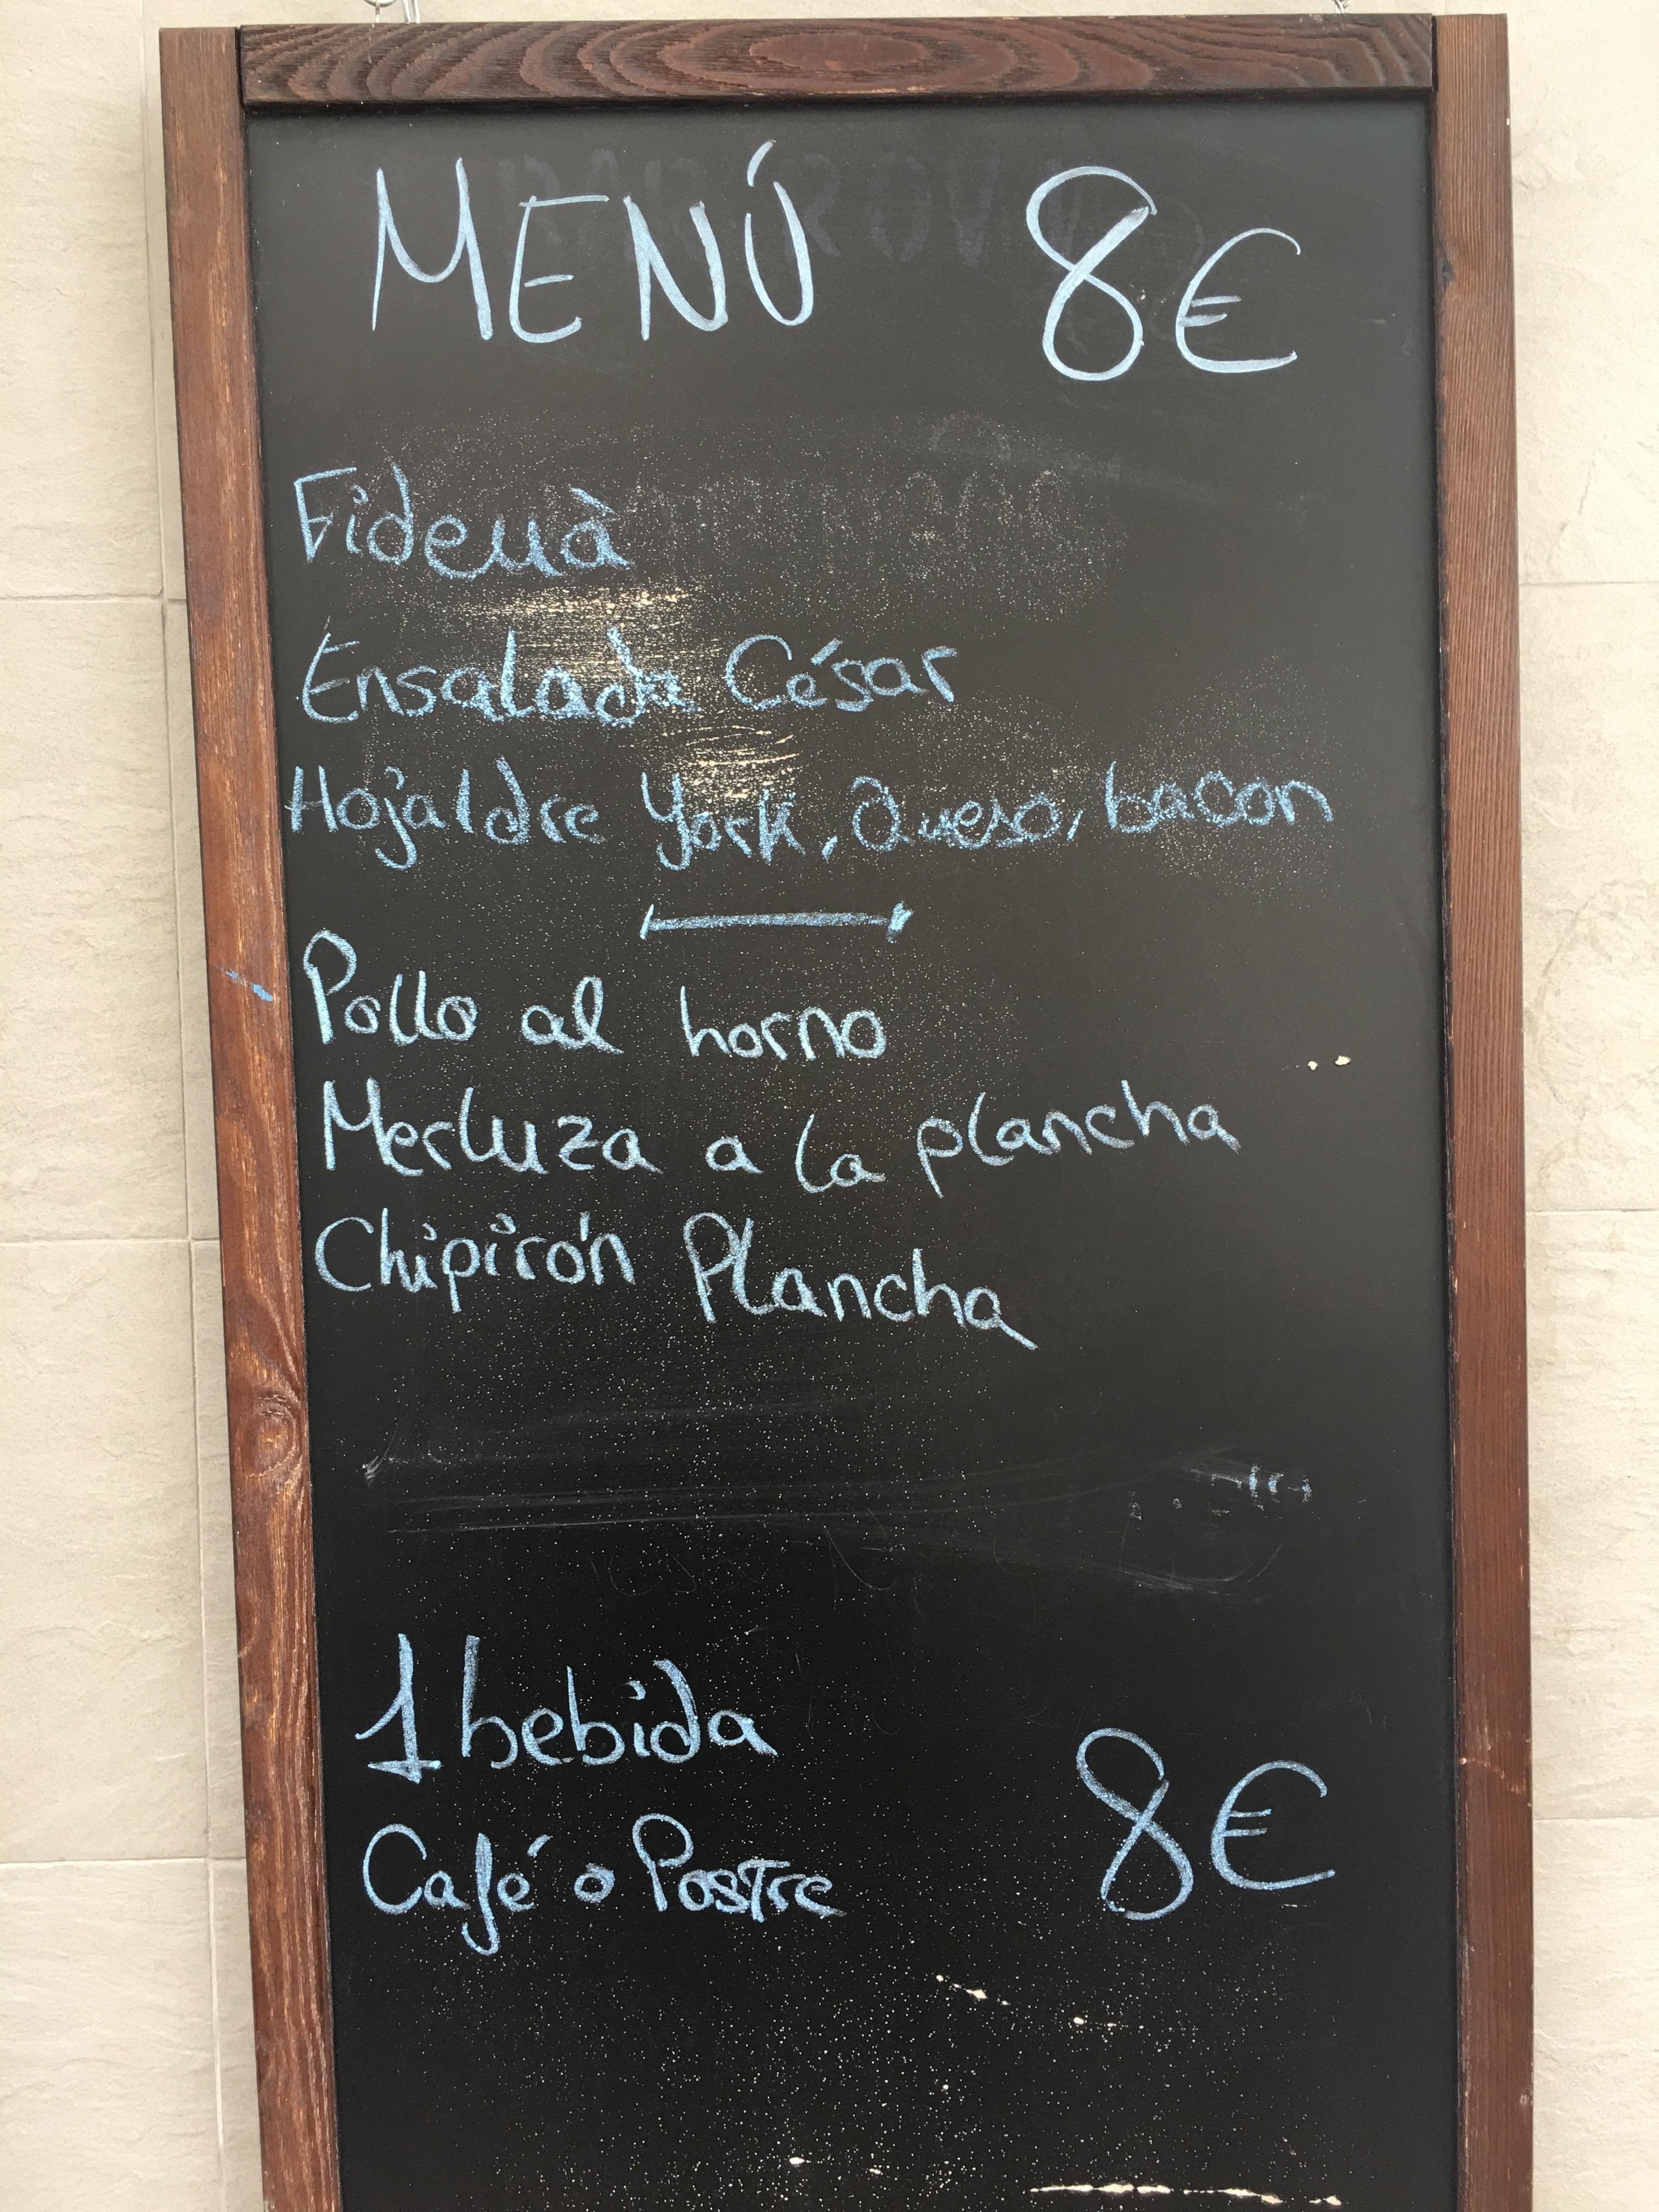 MENÚ 8€
Fideuà
Ensalada César
Hojaldre York, Queso, bacon
Pollo al horno
Merluza a la plancha
Chipirón Plancha
1 bebida
Café o Postre 8€